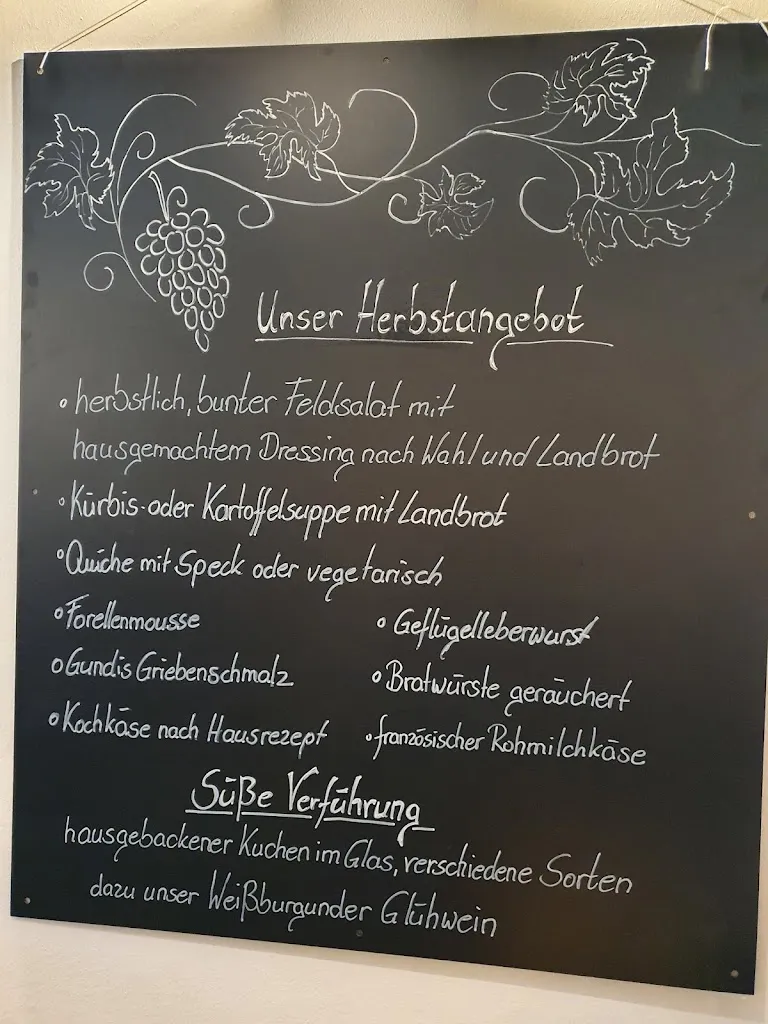 Unser Herbstangebot
• herbstlich, bunter Feldsalat mit
hausgemachtem Dressing nach Wahl und Landbrot
• Kürbis- oder Kartoffelsuppe mit Landbrot
• Quiche mit Speck oder vegetarisch
• Forellenmousse
• Geflügelleberwurst
• Gundis Griebenschmalz
• Bratwürste geräuchert
• Kochkäse nach Hausrezept
• französischer Rohmilchkäse
Süße Verführung
hausgebackener Kuchen im Glas, verschiedene Sorten
dazu unser Weißburgunder Glühwein